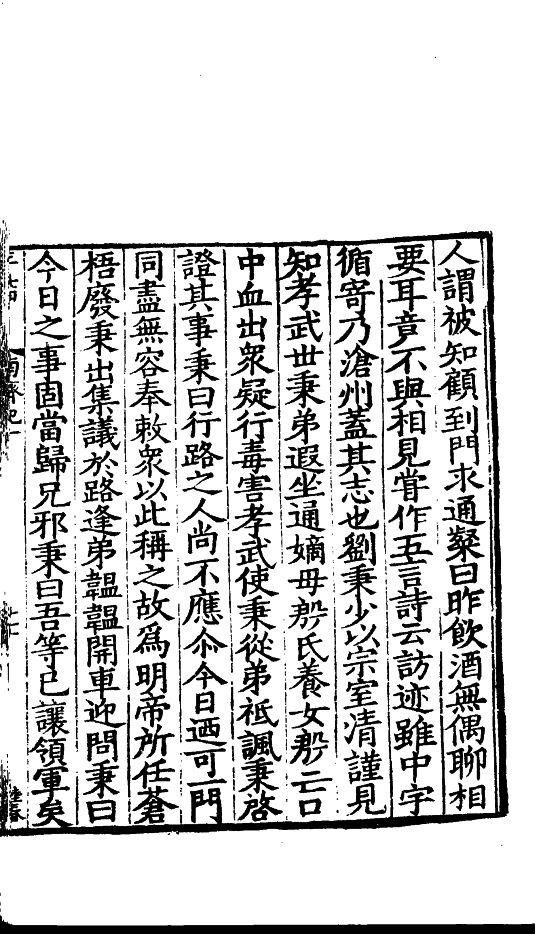 人謂被知顧到門求通粲曰昨飲酒無偶聊相
要耳竟不與相見甞作五言詩云訪迹雖中宇
循寄乃滄州蓋其志也劉秉少以宗室清謹見
知孝武世秉弟遐坐通嫡母殷氏養女殷亡口
中血出衆疑行毒害孝武使秉從弟祗諷秉啓
證其事秉曰行路之人尚不應尒今日迺可一門
同盡無容奉敕衆以此稱之故爲明帝所任蒼
梧廢秉出集議於路逢弟韞韞開車迎問秉曰
今日之事固當歸兄邪秉曰吾等已讓領軍矣